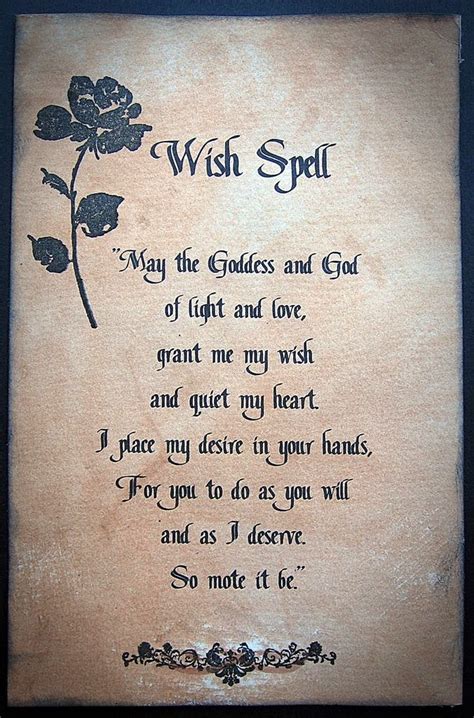 Wish Spell
"May the Goddess and God
of light and love,
grant me my wish
and quiet my heart.
I place my desire in your hands,
For you to do as you will
and as I deserve.
So mote it be."